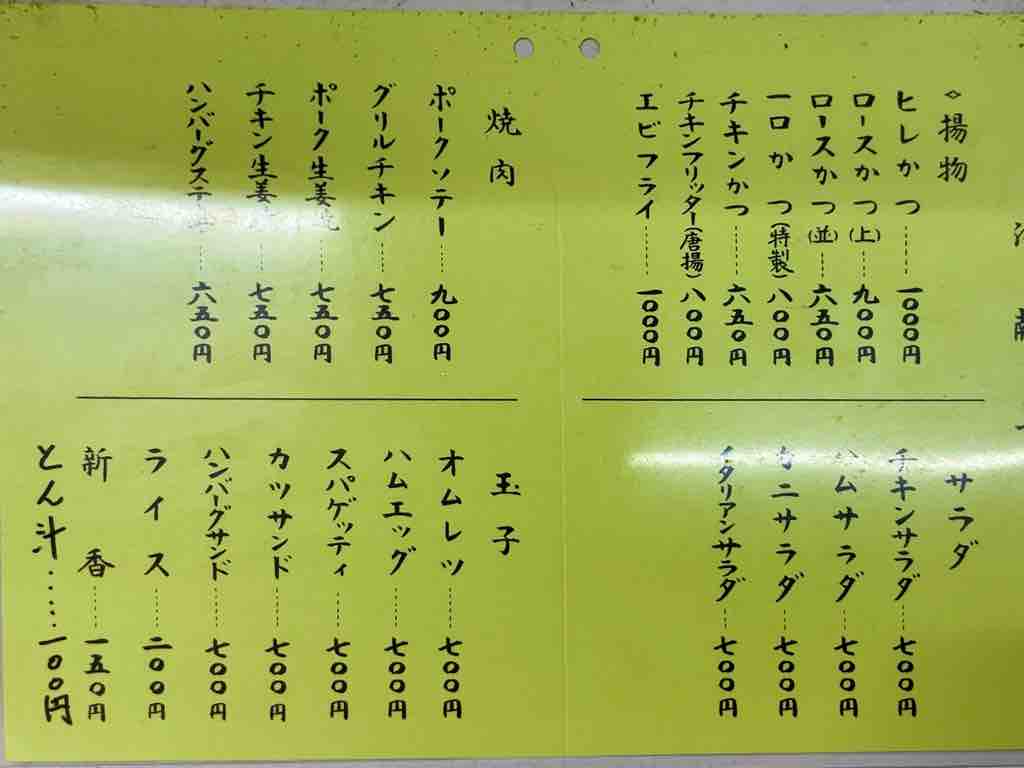 ◇揚物
ヒレかつ……一〇〇〇円
ロースかつ(上)……九〇〇円
ロースかつ(並)……六五〇円
一口かつ(特製)八〇〇円
チキンかつ……六五〇円
チキンフリッター(唐揚)八〇〇円
エビフライ……一〇〇〇円
焼肉
ポークソテー……九〇〇円
グリルチキン……七五〇円
ポーク生姜焼……七五〇円
チキン生姜……七五〇円
ハンバーグステ……六五〇円
サラダ
チキンサラダ……七〇〇円
ハムサラダ……七〇〇円
カニサラダ……七〇〇円
イタリアンサラダ……七〇〇円
玉子
オムレツ……七〇〇円
ハムエッグ……七〇〇円
スパゲッティ……七〇〇円
カツサンド……七〇〇円
ハンバーグサンド……七〇〇円
ライス……二〇〇円
新香……一五〇円
とん汁……一〇〇円